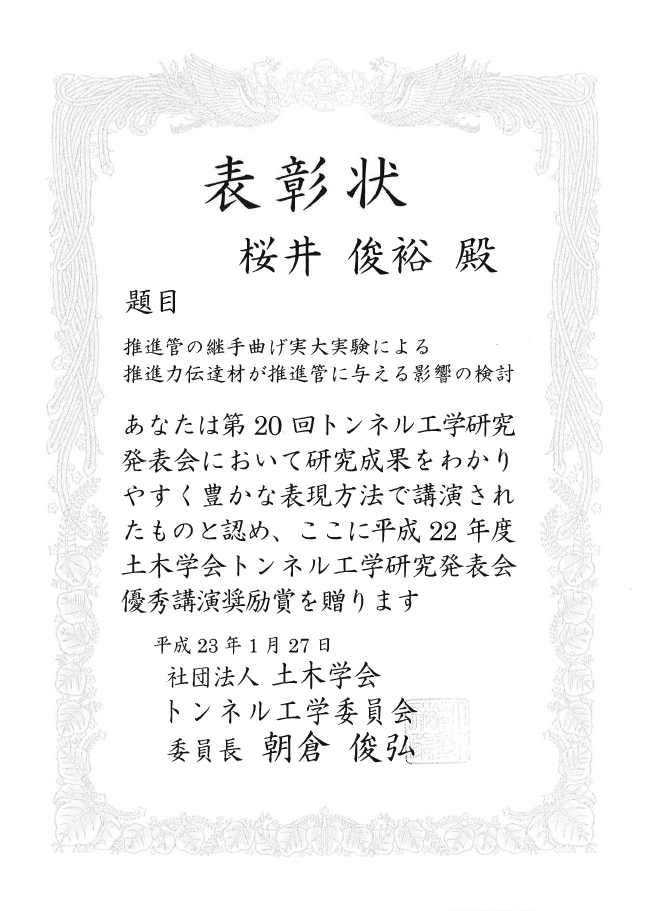 表彰状
桜井 俊裕 殿
題目
推進管の継手曲げ実大実験による
推進力伝達材が推進管に与える影響の検討
あなたは第 20 回トンネル工学研究
発表会において研究成果をわかり
やすく豊かな表現方法で講演され
たものと認め、ここに平成 22 年度
土木学会トンネル工学研究発表会
優秀講演奨励賞を贈ります
平成 23 年 1 月 27 日
社団法人 土木学会
トンネル工学委員会
委員長 朝倉 俊弘